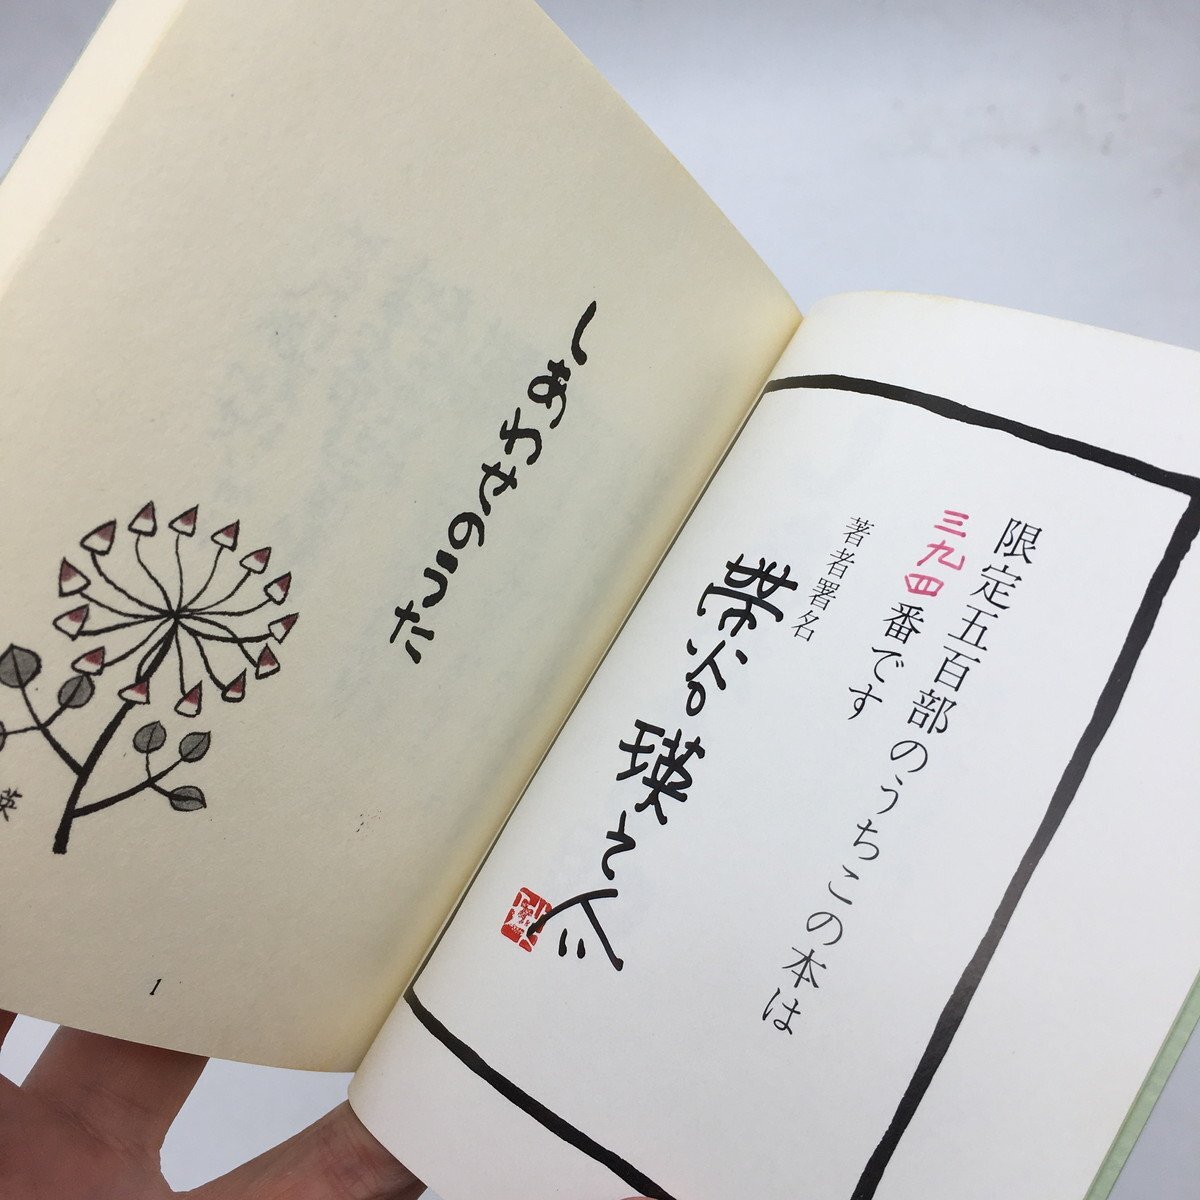 限定五百部のうちこの本は
三九四番です
著者署名
帯谷瑛之介
しあわせのうた
英
1